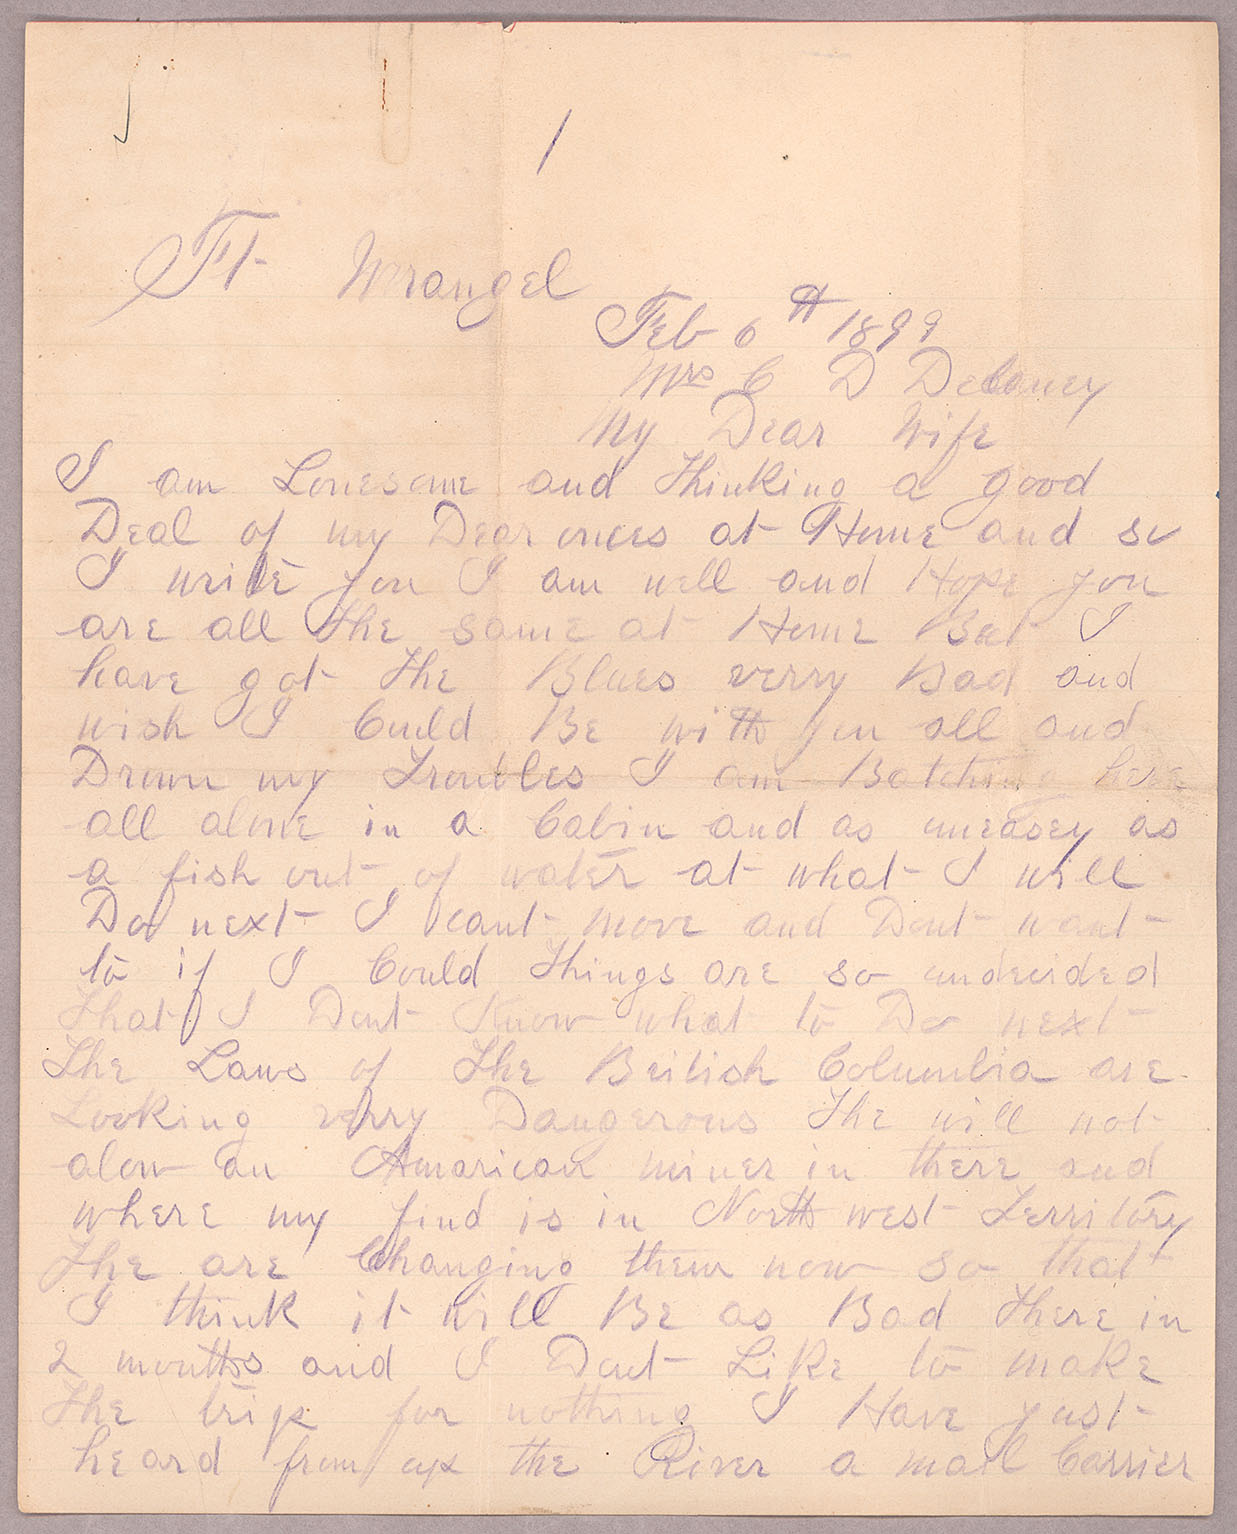 1
Ft Wrangel
Feb 6th 1899
Mrs C D Delaney
My Dear Wife
I am Lonesome and thinking a good
Deal of my Dear onces at Home and so
I write you I am well and Hope you
are all the same at Home But I
have got the Blues verry Bad and
wish I Could Be with you all and
Drown my Troubles I am Batching here
all alone in a Cabin and as uneasey as
a fish out of water at what I will
Do next I cant move and Dont want
to if I Could things are so undecided
that I Dont Know what to Do next
The Laws of the British Columbia are
Looking verry Dangerous The will not
alow an American miner in there and
where my find is in North west Territory
The are Changing them now so that
I think it will Be as Bad there in
2 months and I Dont Like to make
the trip for nothing I Have just
heard from up the River a mail Carrier